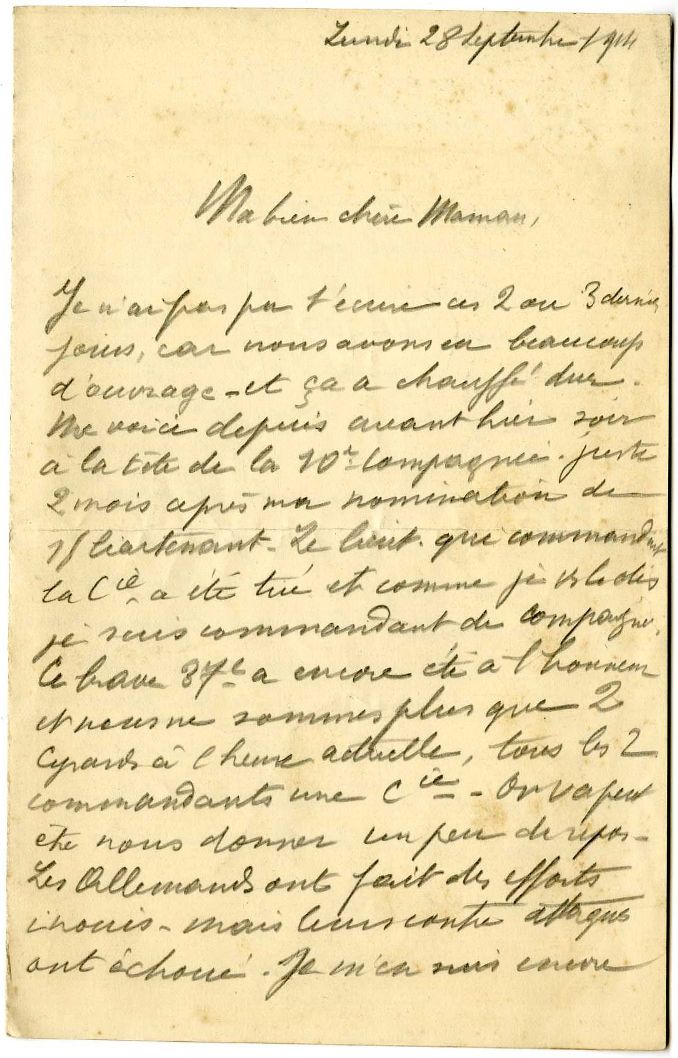 Lundi 28 Septembre 1914
Ma bien chère Maman,
Je n'ai pas pu t'écrire ces 2 ou 3 derniers
jours, car nous avons eu beaucoup
d'ouvrage - et ça a chauffé dur.
Me voici depuis avant hier soir
à la tête de la 10e Compagnie. juste
2 mois après ma nomination de
s/lieutenant. Le lieut. qui commandait
la Cie a été tué et comme je le dis
je suis commandant de compagnie.
Ce brave 37e a encore été à l'honneur
et nous ne sommes plus que 2
Cyrards à l'heure actuelle, tous les 2
commandants une Cie - On va peut
être nous donner un peu de repos -
Les Allemands ont fait des efforts
inouis - mais leurs contre attaques
ont échoué. Je m'en suis encore